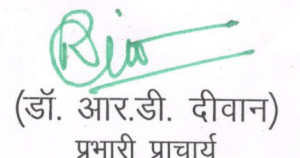 (डॉ. आर.डी. दीवान)
प्रभारी प्राचार्य